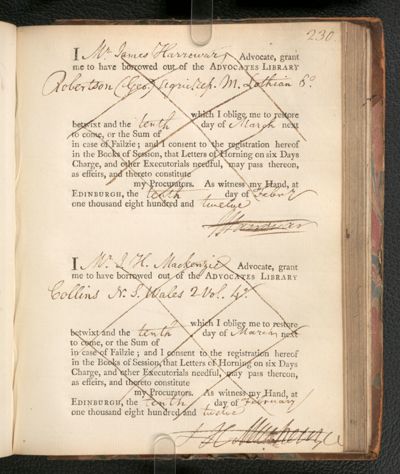 230
I Mr. James Harrowar Advocate, grant
me to have borrowed out of the ADVOCATES LIBRARY
Robertson (Geo.) M. Lothian 8o.
which I oblige me to restore
betwixt and the tenth day of March next
to come, or the Sum of
in case of Failzie; and I consent to the registration hereof
in the Books of Session, that Letters of Horning on six Days
Charge, and other Executorials needful, may pass thereon,
as effeirs, and thereto constitute
my Procurators. As witness my Hand, at
EDINBURGH, the tenth day of Febry
one thousand eight hundred and twelve
I Mr. J. H. Mackenzie Advocate, grant
me to have borrowed out of the ADVOCATES LIBRARY
Collins N. S. Wales 2 Vol. 4o.
which I oblige me to restore
betwixt and the tenth day of March next
to come, or the Sum of
in case of Failzie; and I consent to the registration hereof
in the Books of Session, that Letters of Horning on six Days
Charge, and other Executorials needful, may pass thereon,
as effeirs, and thereto constitute
my Procurators. As witness my Hand, at
EDINBURGH, the tenth day of February
one thousand eight hundred and twelve
J H Mackenzie